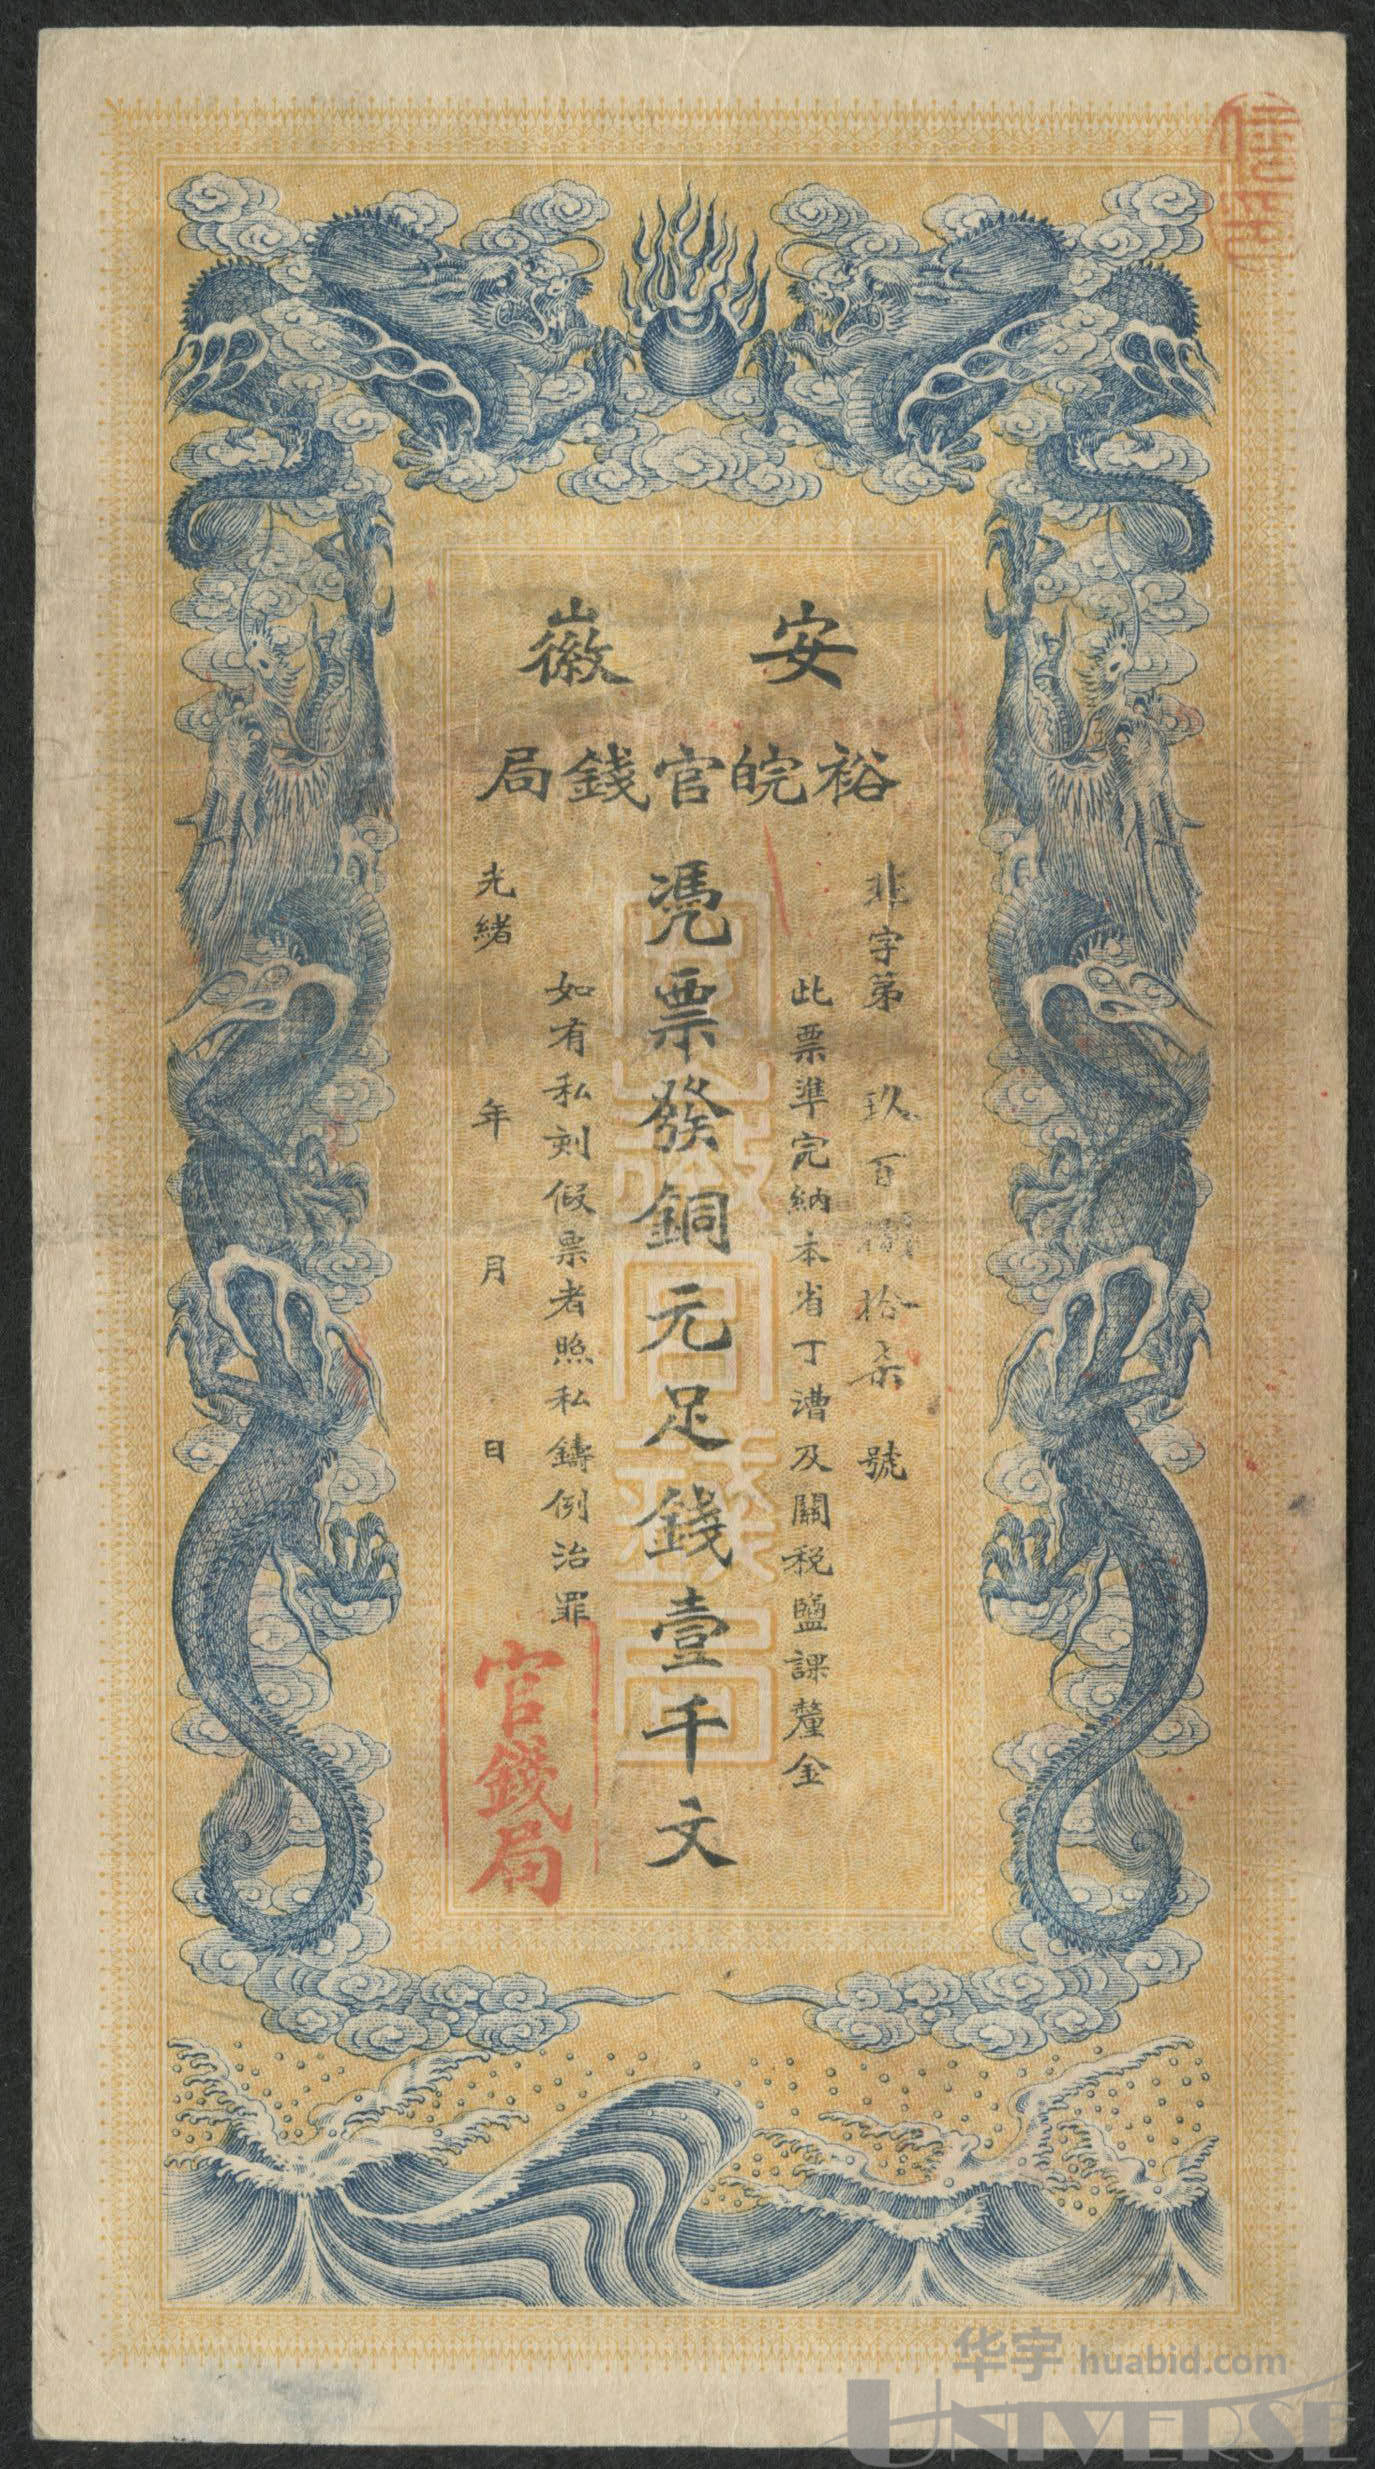 安徽
裕皖官錢局
字第玖百拾柒號
此票準完納本省丁漕及關税鹽課釐金
憑票發銅元足錢壹千文
如有私刻假票者照私鑄例治罪
光緒 年 月 日
官錢局
华宇 huabid.com
UNIVERSE